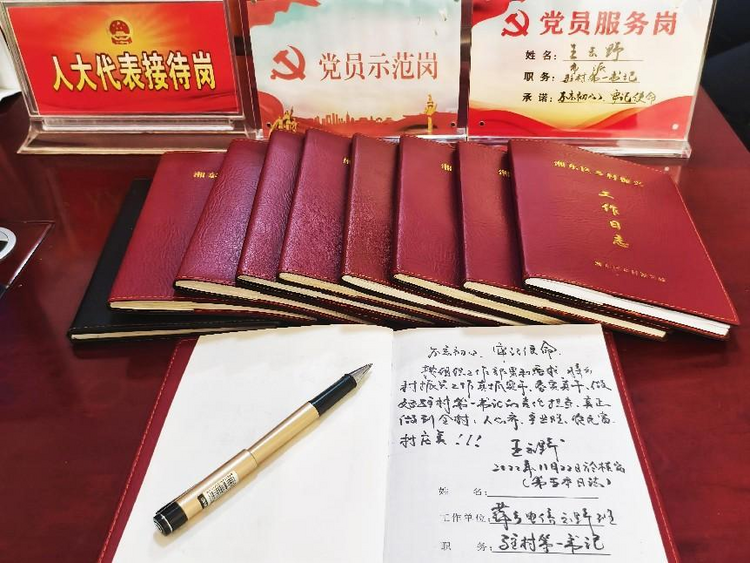 人大代表接待岗
党员示范岗
党员服务岗
姓名：王云野
职务：驻村第一书记
承诺：不忘初心、牢记使命
湘东区乡村振兴
工作日志
不忘初心、牢记使命.
按组织工作部署和要求，将乡
村振兴工作真抓实干、务实真干，做
好驻村第一书记的责任担当，真正
做到全村：人心齐、产业旺、农民富、
村庄美！！！
王云野
2022年11月22日
（第五本日志）
姓 名：
工作单位：萍乡电信云野班
职 务：驻村第一书记